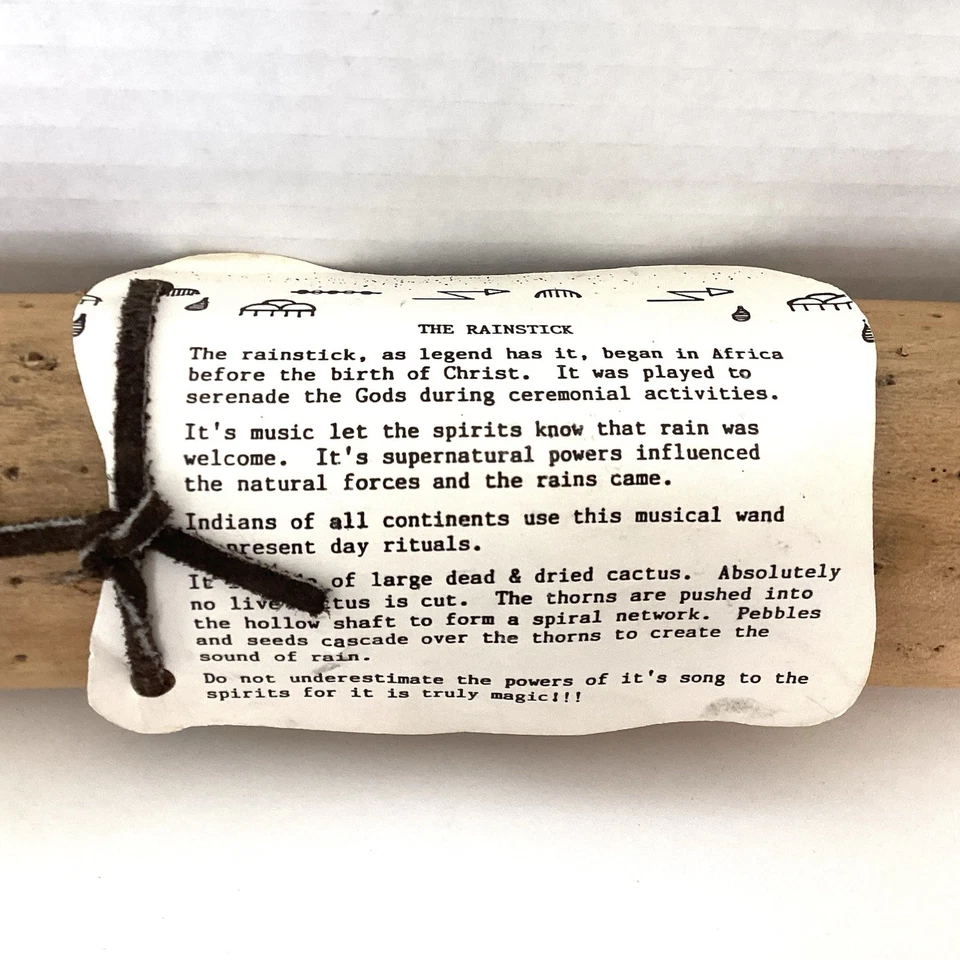 THE RAINSTICK
The rainstick, as legend has it, began in Africa
before the birth of Christ. It was played to
serenade the Gods during ceremonial activities.
It's music let the spirits know that rain was
welcome. It's supernatural powers influenced
the natural forces and the rains came.
Indians of all continents use this musical wand
present day rituals.
It of large dead & dried cactus. Absolutely
no live is cut. The thorns are pushed into
the hollow shaft to form a spiral network. Pebbles
and seeds cascade over the thorns to create the
sound of rain.
Do not underestimate the powers of it's song to the
spirits for it is truly magic!!!